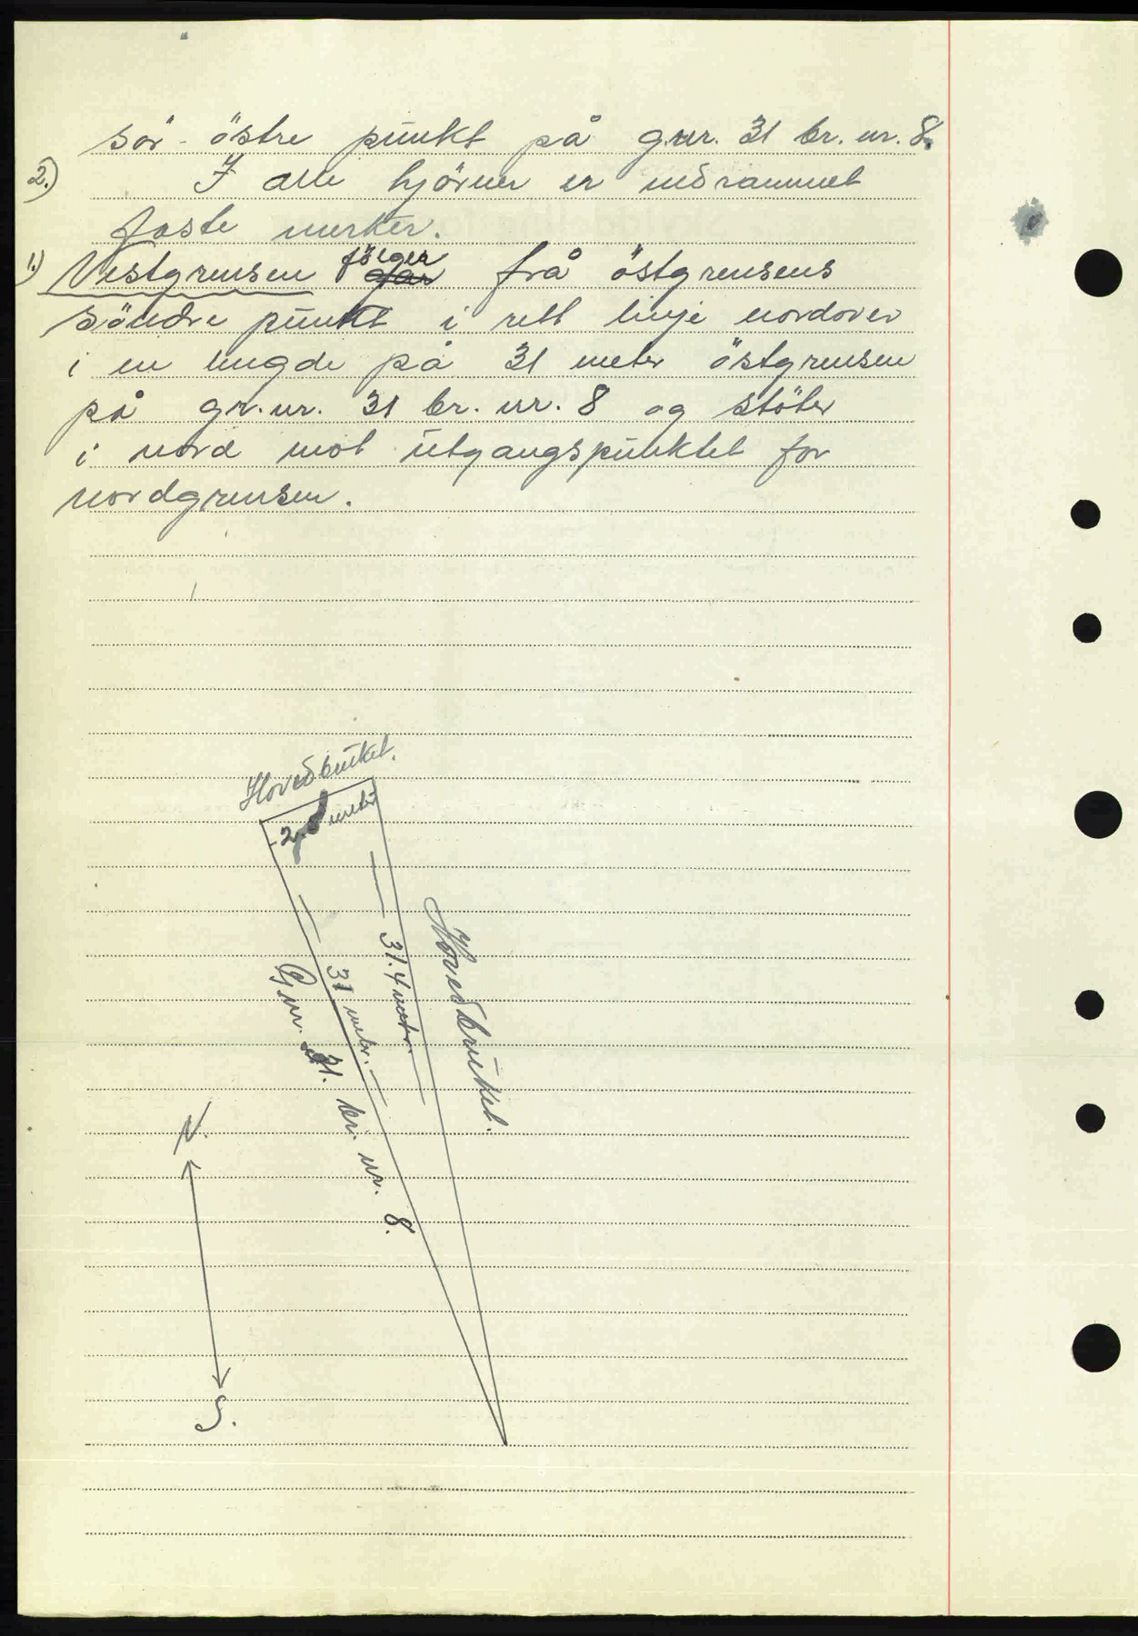 sör-östre punkt på g.nr. 31 br. nr. 8.
2.) I alle hjörner er nedrammet
faste merker.
1.) Vestgrensen følger går frå östgrensens
söndre punkt i rett linje nordover
i en lengde på 31 meter östgrensen
på gr.nr. 31 br. nr. 8 og støter
i nord mot utgangspunktet for
nordgrensen.
Hovedbruket.
meter
31.4 metr.
Hovedbruket.
31 metr.
G.nr. 31. br. nr. 8.
N.
S.